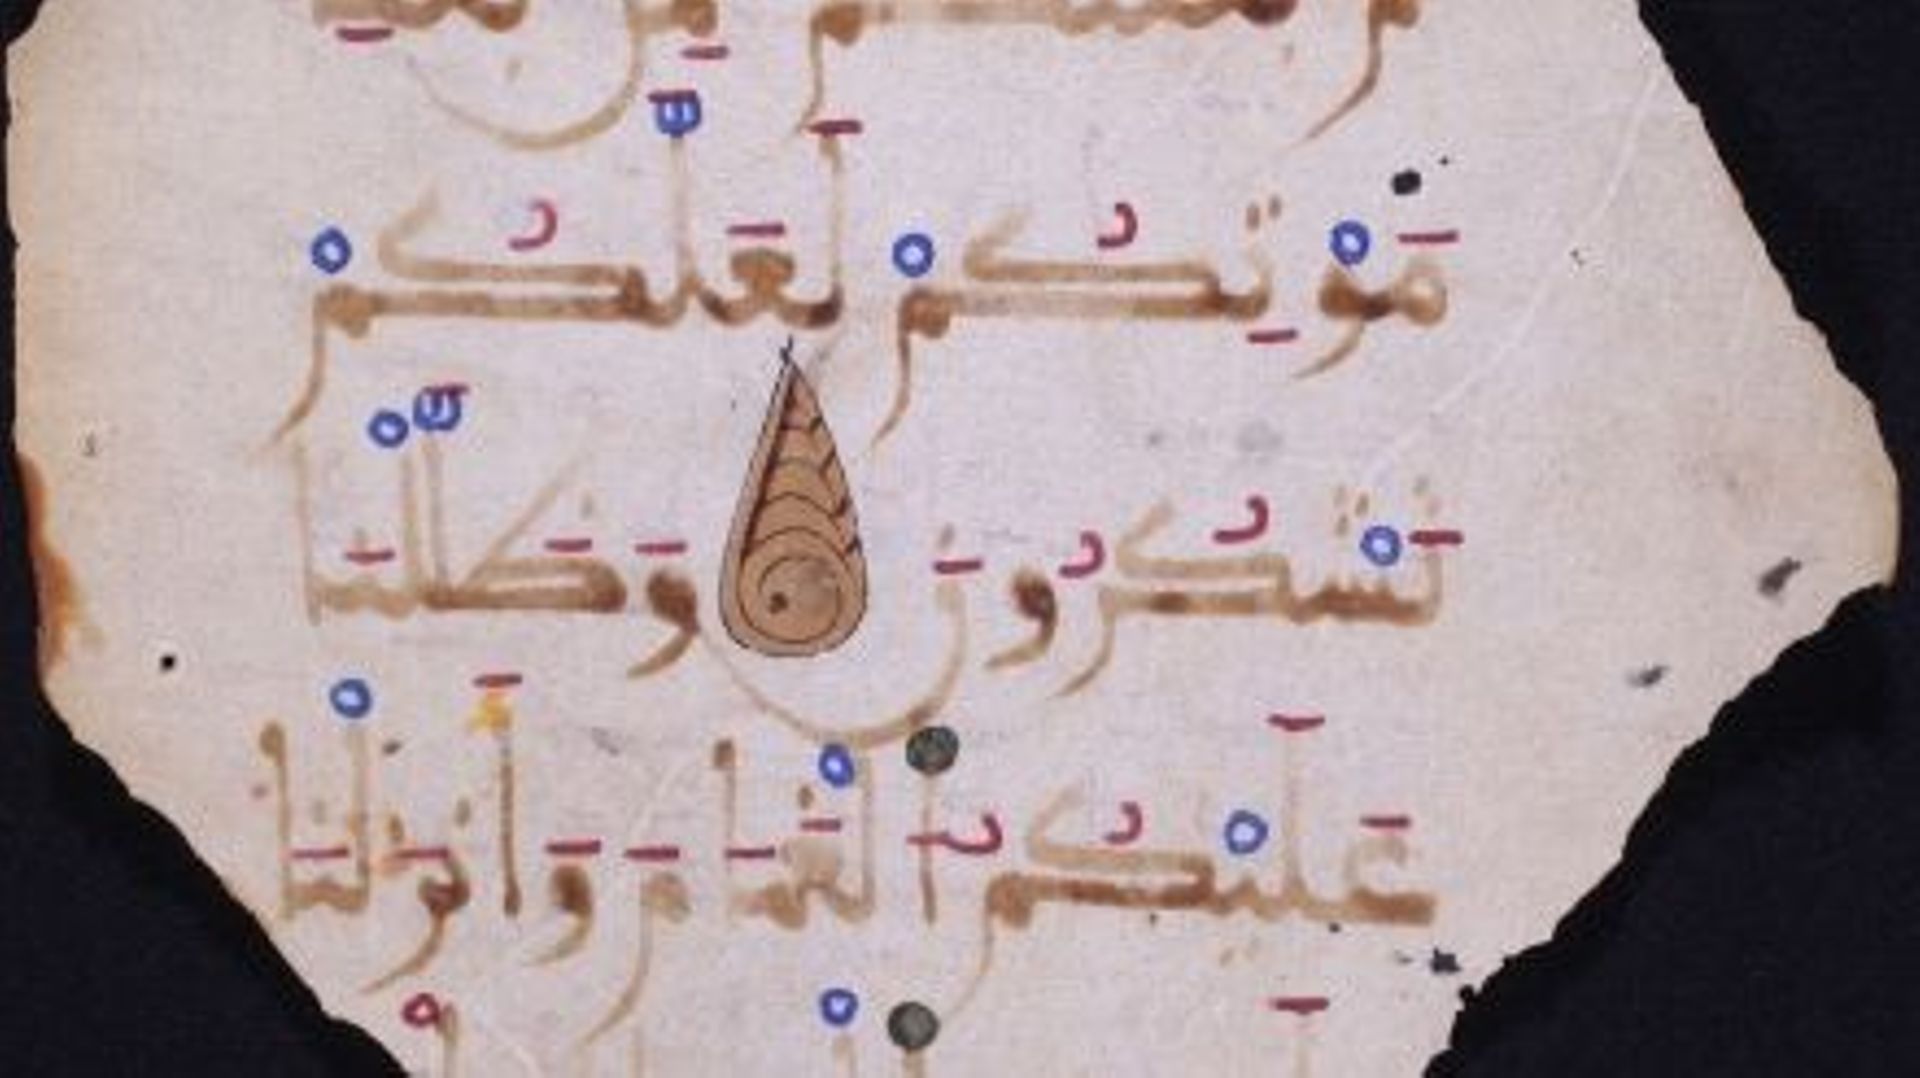 مَوْتِكُمْ لَعَلَّكُمْ
تَشْكُرُونَ وَظَلَّلْنَا
عَلَيْكُمُ الْغَمَامَ وَأَنزَلْنَا